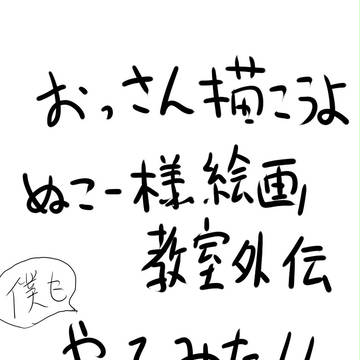 おっさん描こうよ
ぬこー様絵画
教室外伝
僕も
やってみた!!